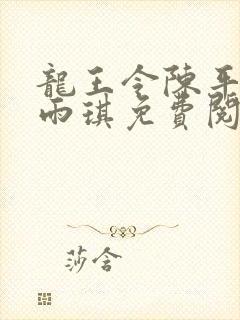 龍王令陳平
雨琪免費閱
莎含